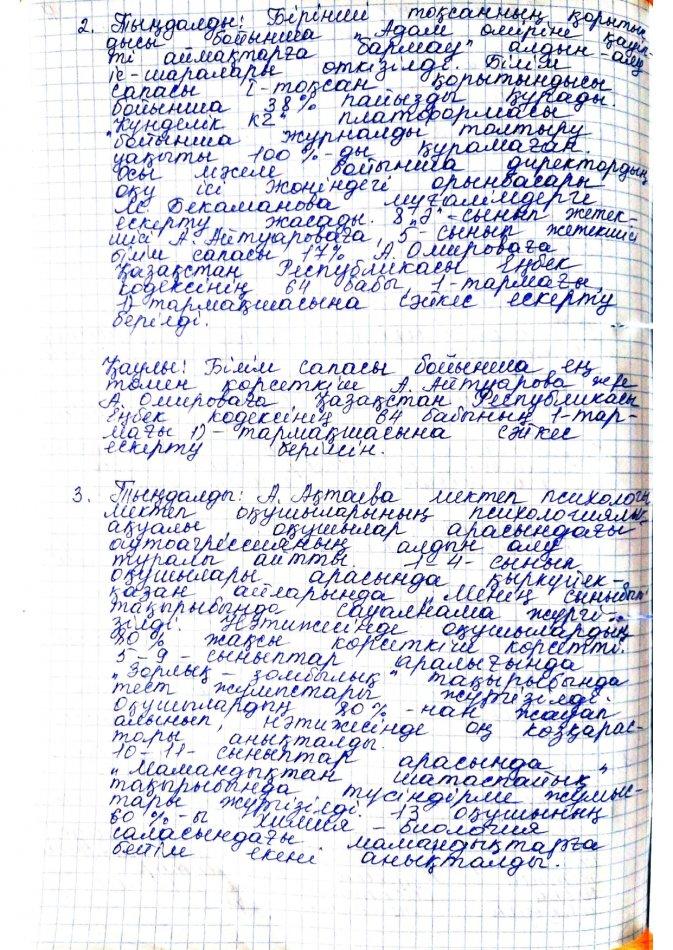 2. Тыңдалды: Бірінші тоқсанның қорытын
дысы бойынша „Адам өміріне қауіп-
ті аймақтарға бармау" алдын-алу
іс-шаралары өткізілді. Білім
сапасы I-тоқсан қорытындысы
бойынша 38% пайызды құрады
„Күнделік кz" платформасы
бойынша журналды толтыру
уақыты 100%-ды құрамаған.
Осы мәселе бойынша директордың
оқу ісі жөніндегі орынбасары
М. Бекаманова мұғалімдерге
ескерту жасады. 8„Ә"-сынып жетек-
шісі А. Айтуароваға, 5-сынып жетекшісі
білім сапасы 17% А. Омироваға
Қазақстан Республикасы Еңбек
кодексінің 64 бабы, 1-тармағы,
1) тармақшасына сәйкес ескерту
берілді.
Қаулы: Білім сапасы бойынша ең
төмен көрсеткіш А. Айтуарова және
А. Омироваға Қазақстан Республикасы
Еңбек кодексінің 64 бабының 1-тар-
мағы 1)-тармақшасына сәйкес
ескерту берілсін.
3. Тыңдалды: А. Ақтаева мектеп психологы
мектеп оқушыларының психологиялық
ақуалы оқушылар арасындағы
аутоагрессияның алдын алу
туралы айтты. 1-4-сынып
оқушылары арасында қыркүйек-
қазан айларында „Менің сыныбым"
тақырыбында сауалнама жүргі-
зілді. Нәтижесінде оқушылардың
80% жақсы көрсеткіш көрсетті.
5-9-сыныптар аралығында
„Зорлық-зомбылық" тақырыбында
тест жұмыстары жүргізілді.
Оқушылардың 80%-нан жауап
алынып, нәтижесінде оң көзқарас-
тары анықталды.
10-11-сыныптар арасында
„Мамандықтан шатаспайық"
тақырыбында түсіндірме жұмыс-
тары жүргізілді. 13 оқушының
60%-ы химия-биология
саласындағы мамандықтарға
бейім екені анықталды.